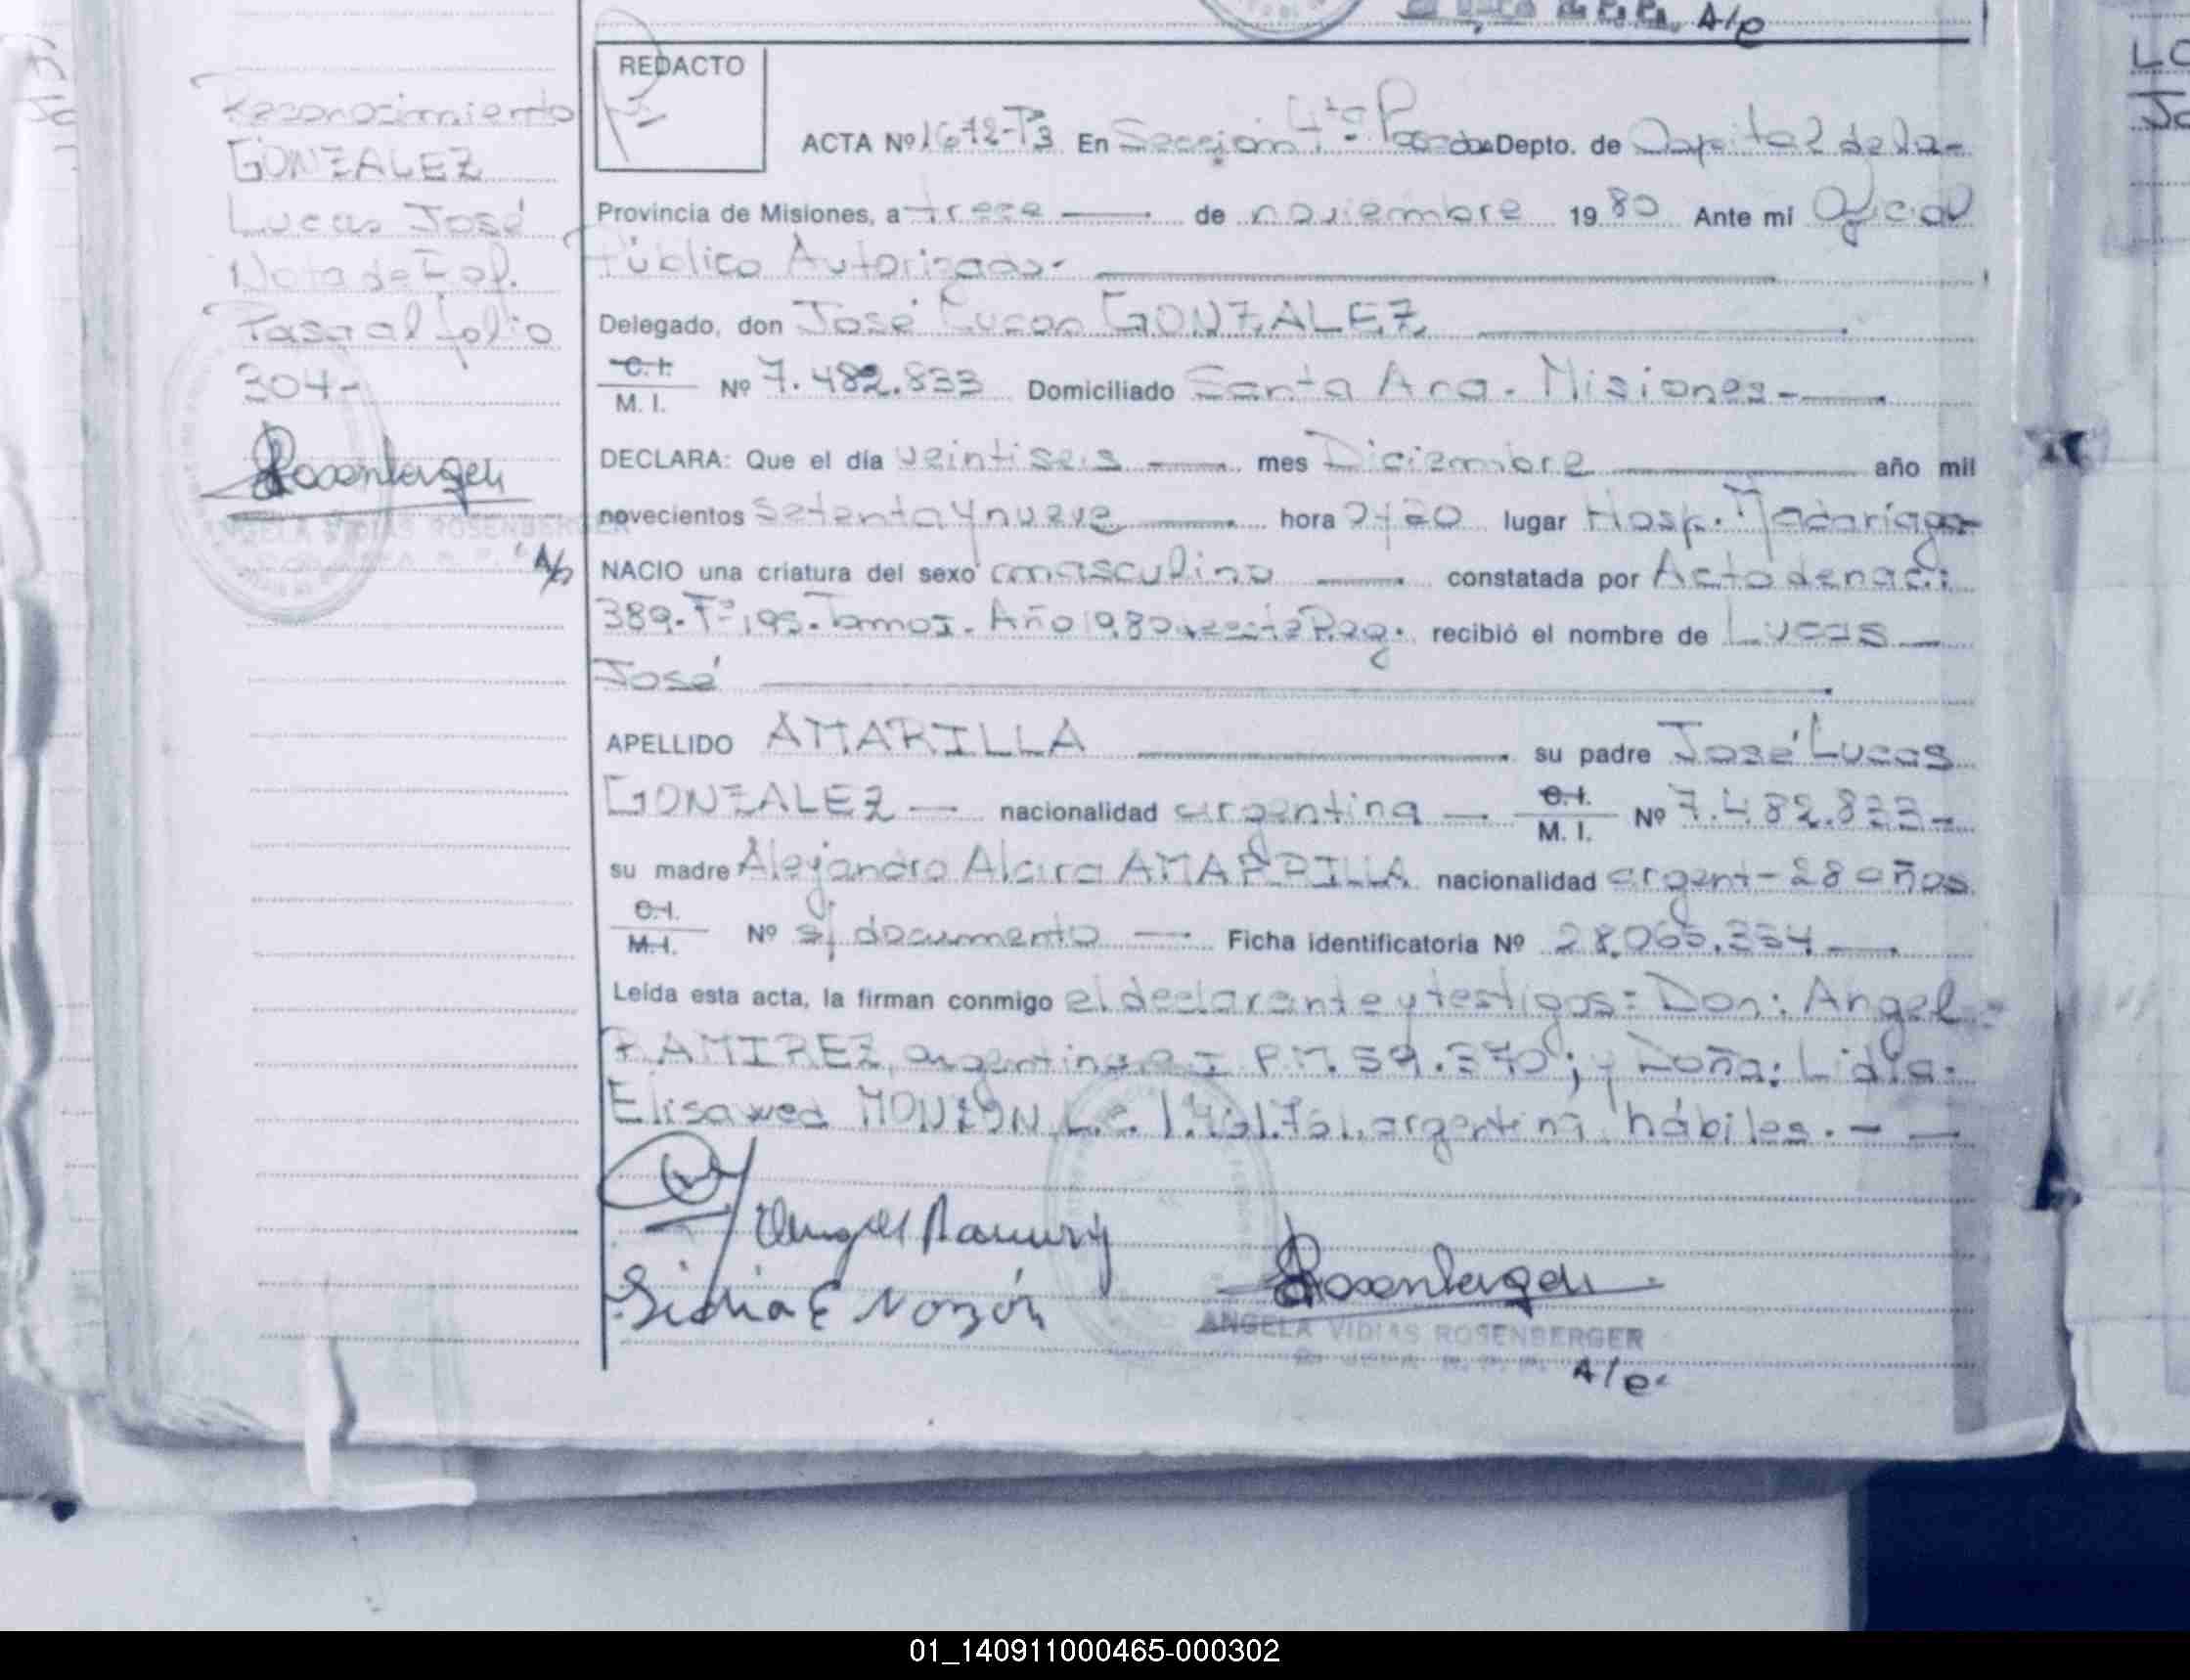 A/c
REDACTO
Reconocimiento
GONZALEZ
Lucas José
Nota de Ref.
Pasa al folio
304-
Rosenberger
ANGELA VIDIAS ROSENBERGER
A/c
ACTA Nº 1672-Tº3 En Sección 4ta Posadas Depto. de Capital de la-
Provincia de Misiones, a trece — de noviembre 1980 Ante mi Oficial
Público Autorizado-
Delegado, don José Lucas GONZALEZ
C. I.
M. I. Nº 7.482.833 Domiciliado Santa Ana - Misiones -
DECLARA: Que el día veintiseis — mes Diciembre — año mil
novecientos setenta y nueve — hora 20 lugar Hosp. Madariaga-
NACIO una criatura del sexo masculino — constatada por Acta de nac:
389-Fº195-Tomo I- Año 1980, Reg. recibió el nombre de Lucas —
José
APELLIDO AMARILLA — su padre José Lucas
GONZALEZ — nacionalidad argentina — C. I.
M. I. Nº 7.482.833-
su madre Alejandra Alcira AMARILLA nacionalidad argent-28 años
C. I.
M. I. Nº s/ documento — Ficha identificatoria Nº 28.065.354 —
Leída esta acta, la firman conmigo el declarante y testigos: Don: Angel
RAMIREZ, argentino C I P.M. 59.370; y Doña: Lidia-
Elisawed MONZON L.c. 1.461.761, argentina hábiles. - —
Angel Ramirez
Lidia E Monzón
Rosenberger
ANGELA VIDIAS ROSENBERGER
A/c
01_140911000465-000302